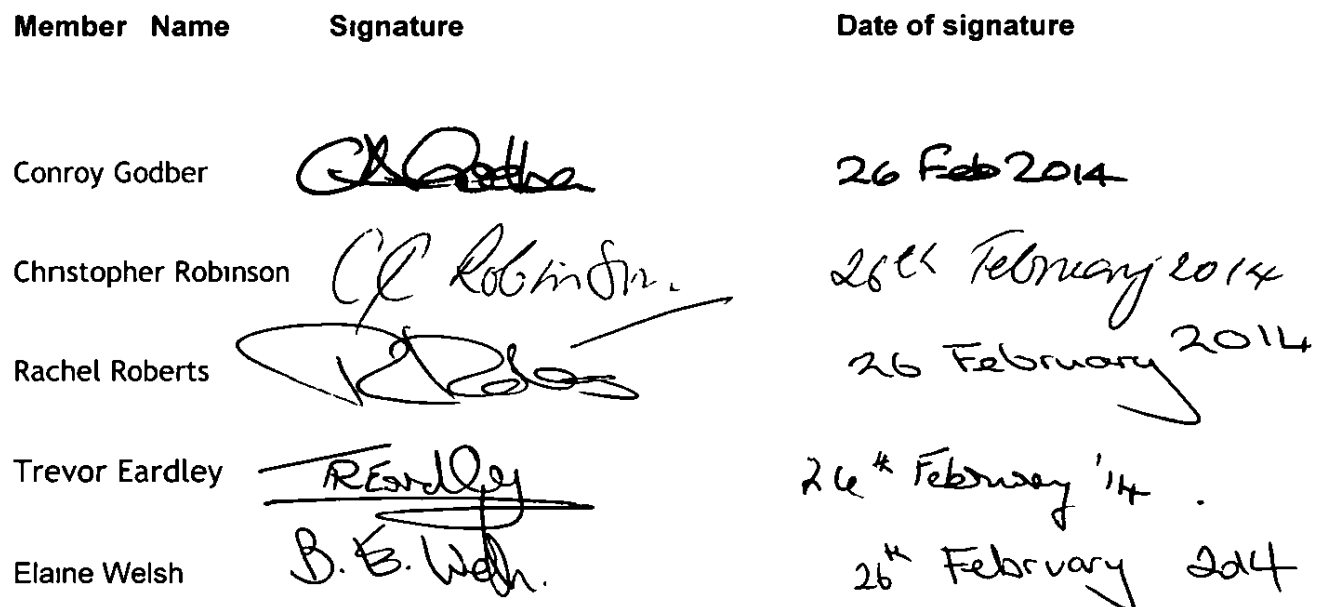 Member Name Signature Date of signature
Conroy Godber C A Godber 26 Feb 2014
Christopher Robinson CC Robinson. 26th February 2014
Rachel Roberts 26 February 2014
Trevor Eardley TREardley 26th February '14.
Elaine Welsh B. E. Welsh. 26th February 2014